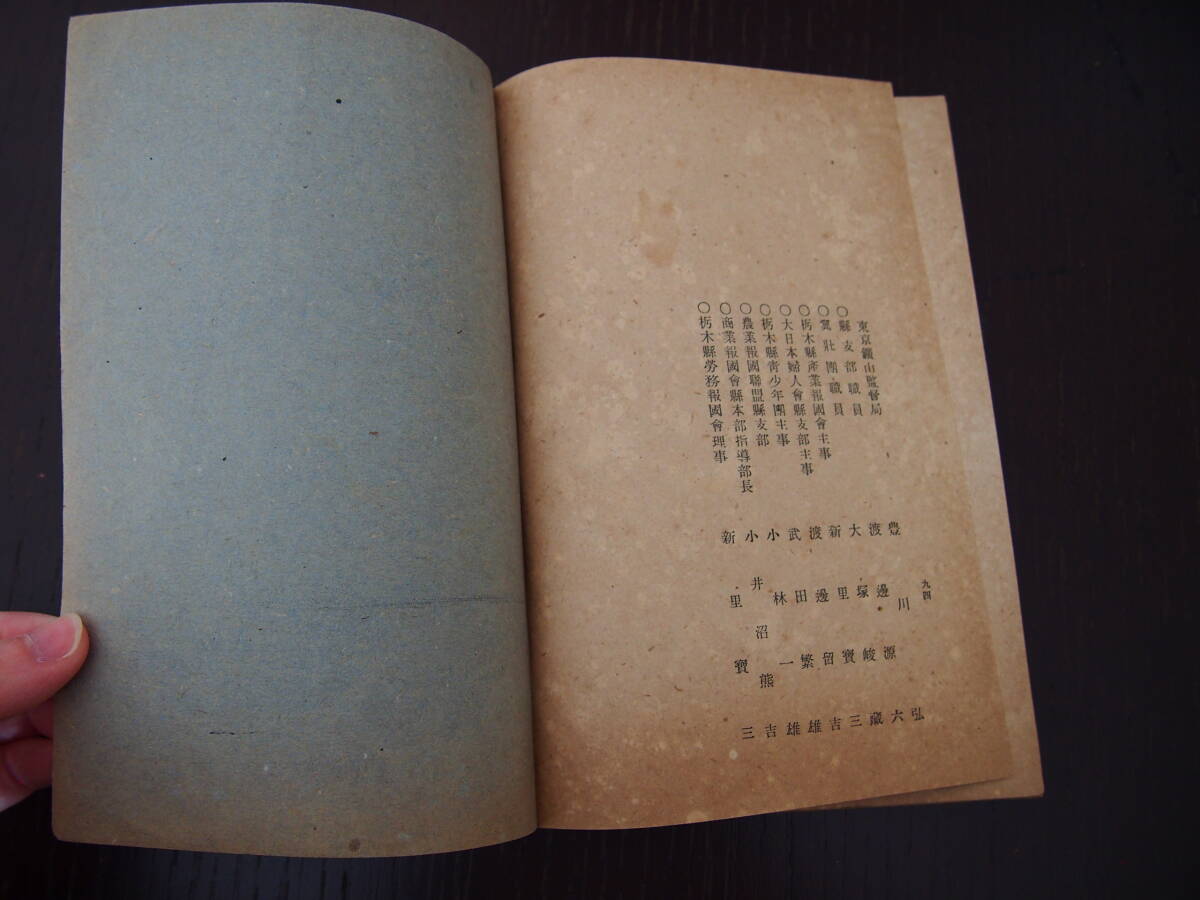 九四
東京鑛山監督局 豊川弘
○縣支部職員 渡邊源六
○翼壯團職員 大塚峻藏
○栃木縣產業報國會主事 新里寶三
○大日本婦人會縣支部主事 渡邊留吉
○栃木縣靑少年團主事 武田繁雄
○農業報國聯盟縣支部 小林一雄
○商業報國會縣本部指導部長 小井沼熊吉
○栃木縣勞務報國會理事 新里寶三